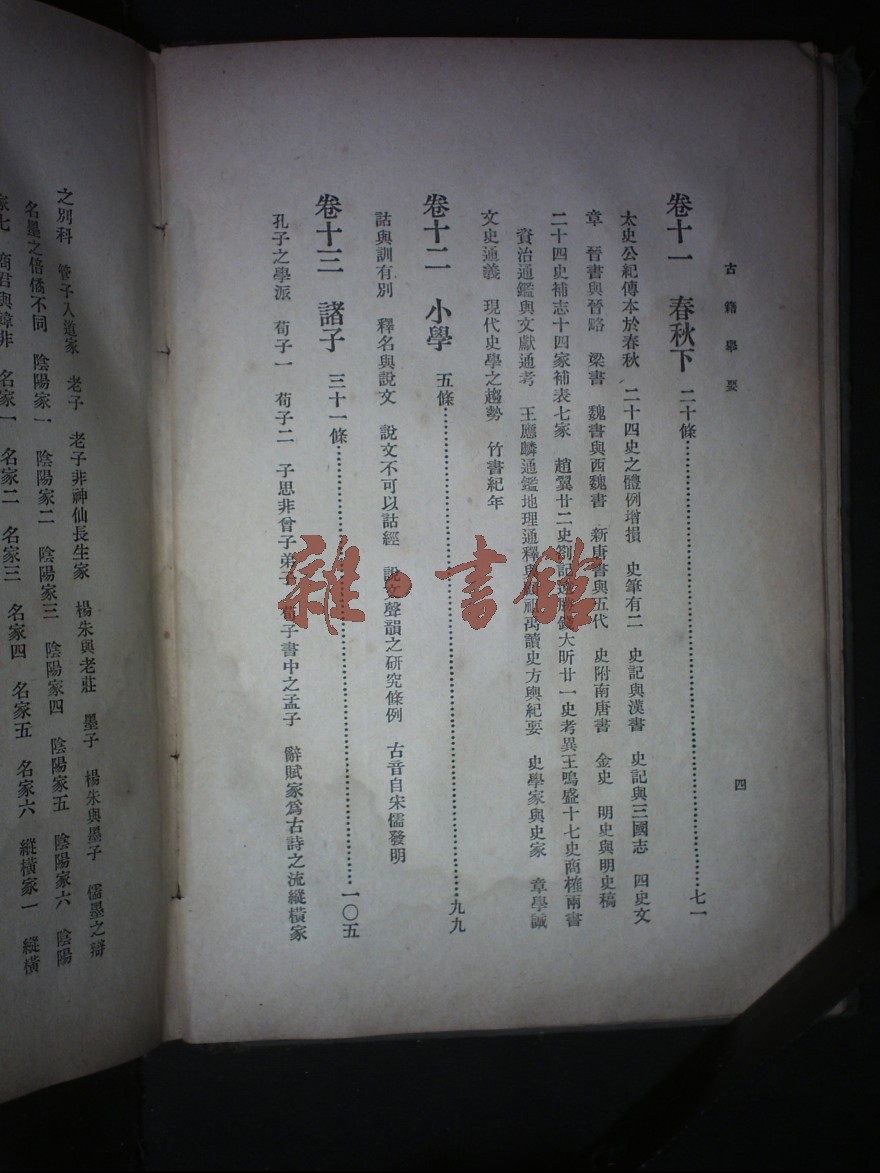 古籍舉要
四
卷十一 春秋下 二十條……七一
太史公紀傳本於春秋 二十四史之體例增損 史筆有二 史記與漢書 史記與三國志 四史文
章 晉書與晉略 梁書 魏書與西魏書 新唐書與五代 史附南唐書 金史 明史與明史稿
二十四史補志十四家補表七家 趙翼廿二史劄記 大昕廿一史考異王鳴盛十七史商榷兩書
資治通鑑與文獻通考 王應麟通鑑地理通釋與 祖禹讀史方輿紀要 史學家與史家 章學誠
文史通義 現代史學之趨勢 竹書紀年
卷十二 小學 五條……九九
詁與訓有別 釋名與說文 說文不可以詁經 說文聲韻之研究條例 古音自宋儒發明
卷十三 諸子 三十一條……一〇五
孔子之學派 荀子一 荀子二 子思非曾子弟子 荀子書中之孟子 辭賦家爲古詩之流縱橫家
之別科 管子入道家 老子 老子非神仙長生家 楊朱與老莊 墨子 楊朱與墨子 儒墨之辯
名墨之倍僪不同 陰陽家一 陰陽家二 陰陽家三 陰陽家四 陰陽家五 陰陽家六 陰陽
家七 商君與韓非 名家一 名家二 名家三 名家四 名家五 名家六 縱橫家一 縱橫
雜·書館